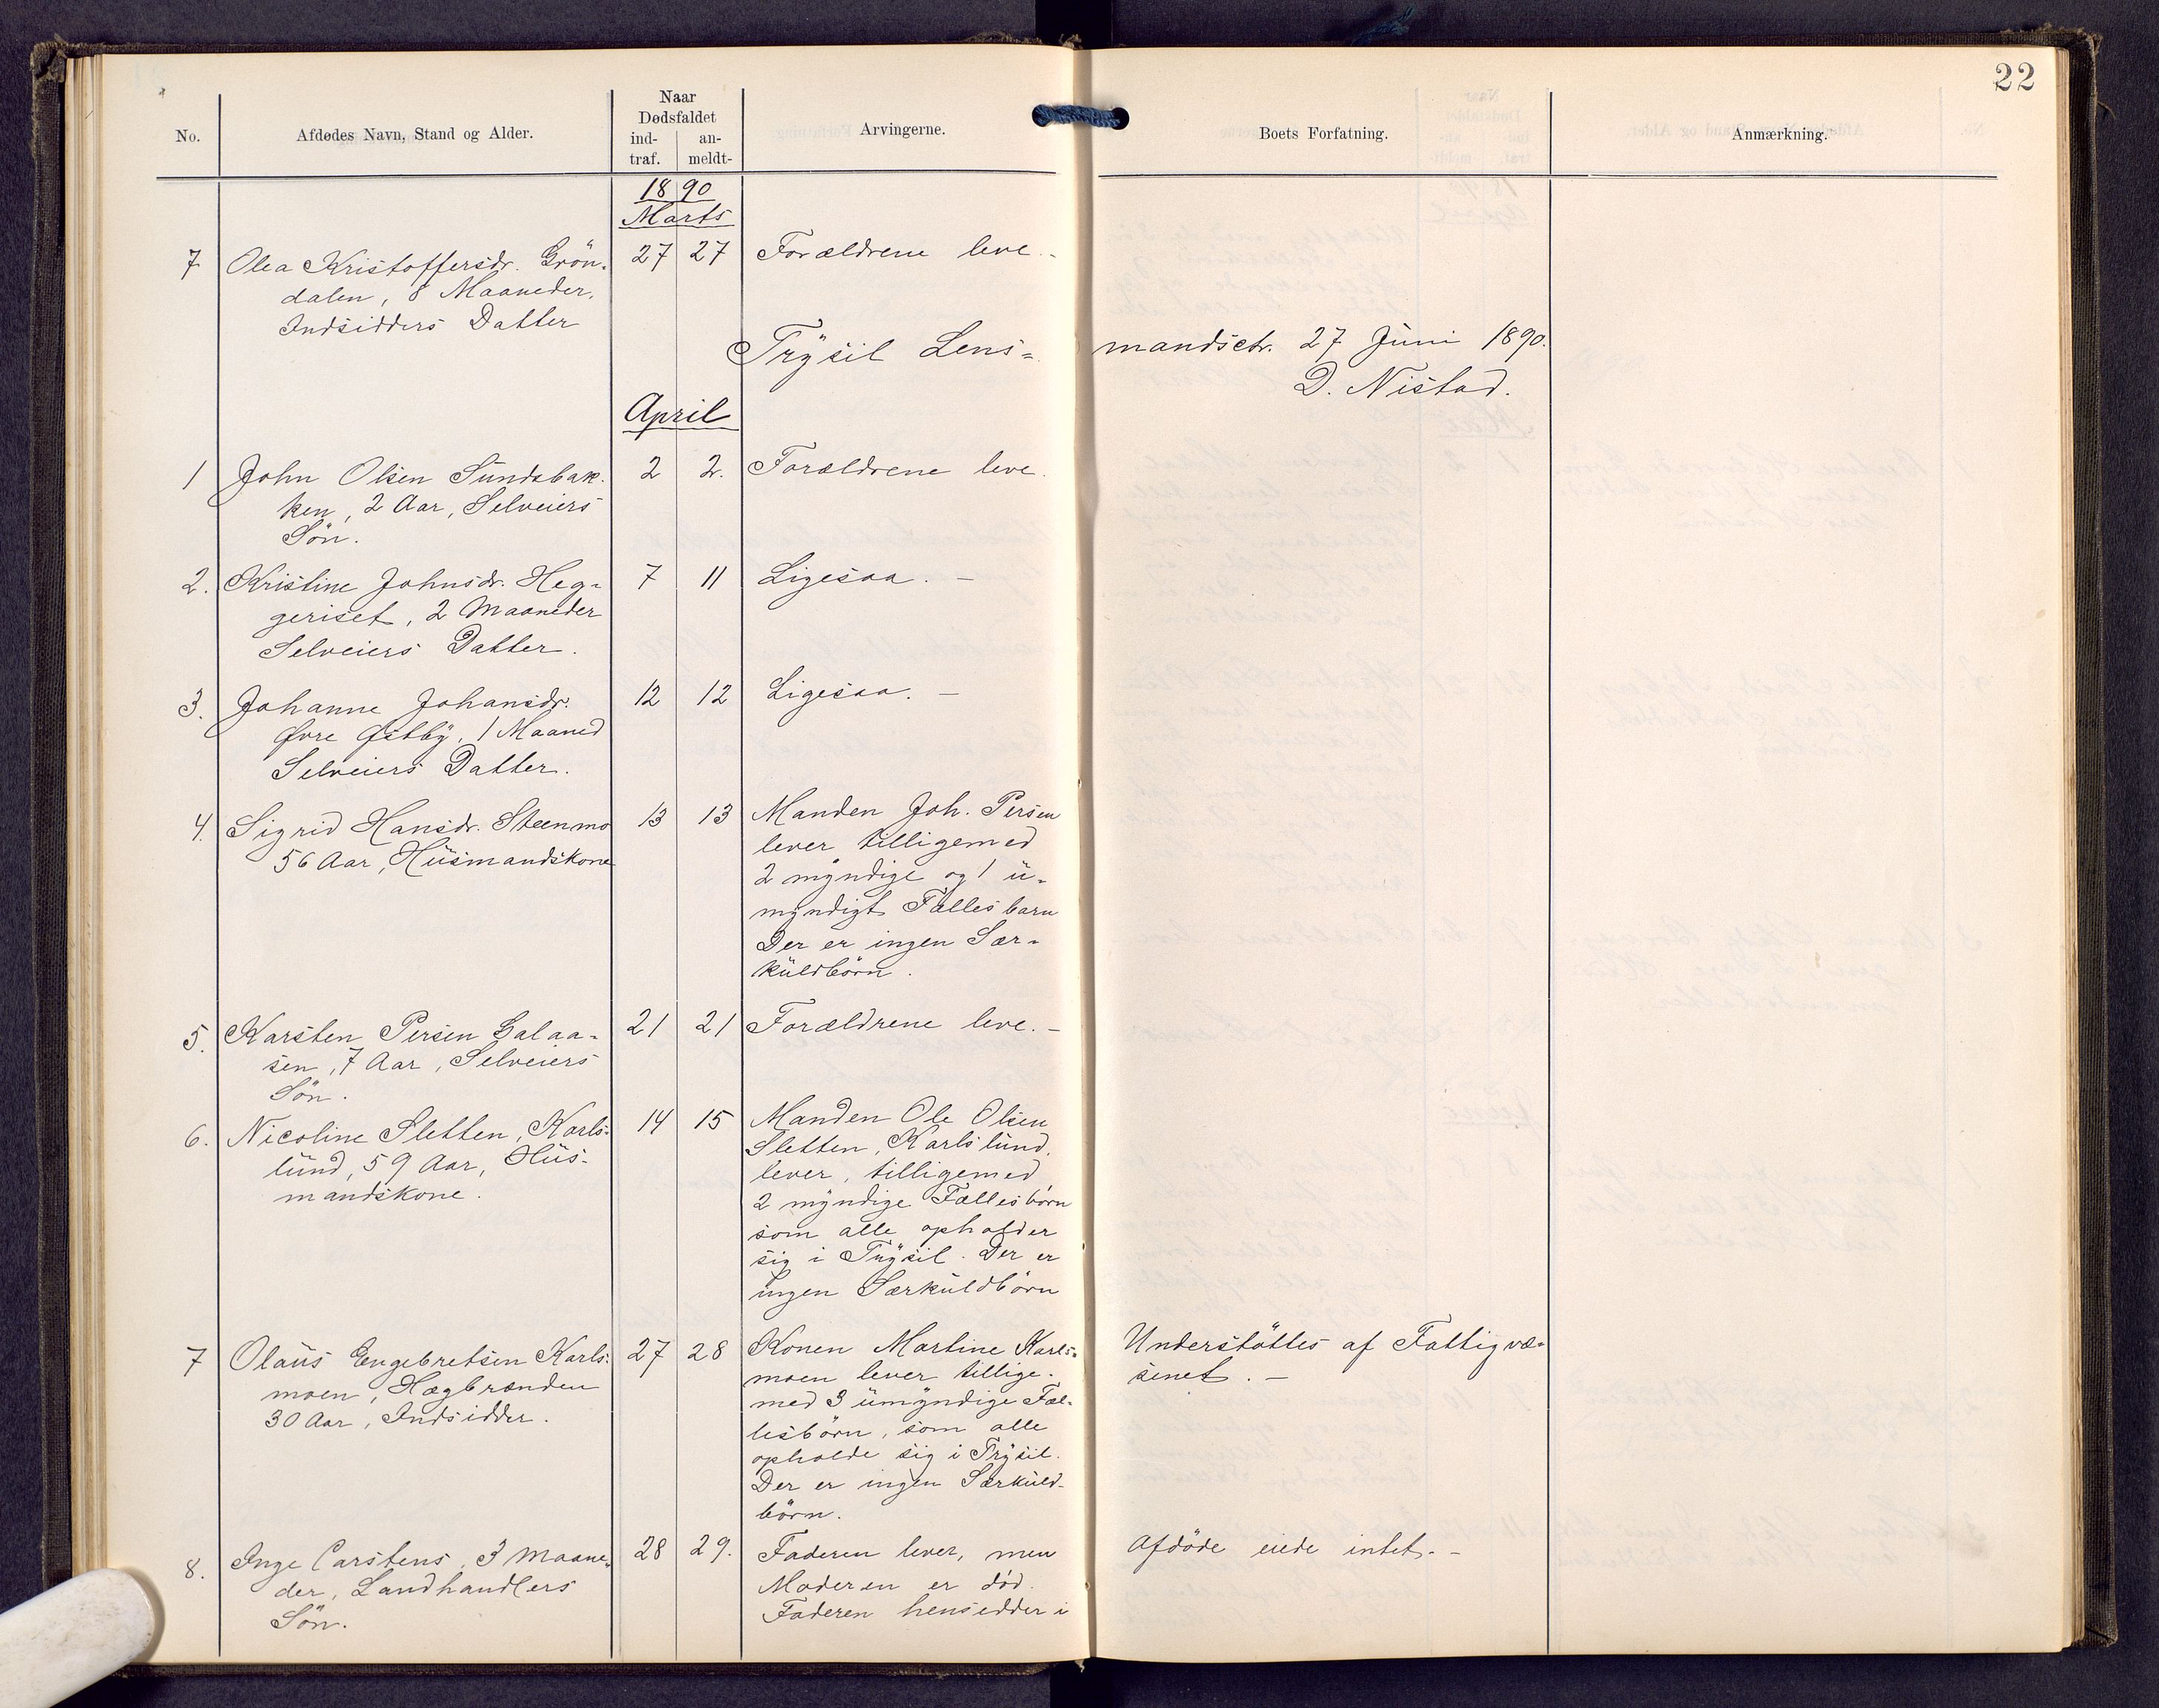 22
No.
Afdødes Navn, Stand og Alder.
Naar
Dødsfaldet
ind-
traf.
an-
meldt-
Arvingerne.
Boets Forfatning.
Anmærkning.
1890
Marts
7 Olea Kristoffersdr. Grön- 27 27 Forældrene leve. -
dalen, 8 Maaneder,
Indsidders Datter
Trysil Lens= mandsctr. 27 Juni 1890.
D. Nistad.
April
1 John Olsen Sundsbak- 2 2. Forældrene leve.
ken, 2 Aar, Selveiers
Sön.
2. Kristine Johnsdr. Heg- 7 11 Ligesaa. -
geriset, 2 Maaneder
Selveiers Datter.
3. Johanne Johansdr. 12 12 Ligesaa. -
Øvre Østby, 1 Maaned
Selveiers Datter.
4. Sigrid Hansdr. Steenmo 13 13 Manden Joh. Persen
56 Aar, Husmandskone lever tilligemed
2 myndige og 1 u-
myndigt Fællesbarn
Der er ingen Sær-
kuldbörn.
5. Karsten Persen Galaa- 21 21 Forældrene leve. -
sen, 7 Aar, Selveiers
Sön.
6. Nicoline Sletten, Karls- 14 15 Manden Ole Olsen
lund, 59 Aar, Hus- Sletten, Karlslund,
mandskone. lever, tilligemed
2 myndige Fællesbörn
som alle opholder
sig i Trysil. Der er
ingen Særkuldbörn
7 Olaus Engebretsen Karls- 27 28 Konen Martine Karls- Understöttes af Fattigvæ-
moen, Hægbrænden moen lever tillige- senet. -
30 Aar, Indsidder. med 3 umyndige Fæl-
lesbörn, som alle
opholde sig i Trysil.
Der er ingen Særkuld-
börn.
8. Inge Carstens, 3 Maane- 28 29. Faderen lever, men Afdöde eiede intet. -
der, Landhandlers Moderen er död.
Sön. Faderen hensidder i